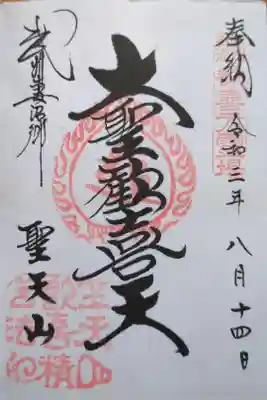 奉納 令和三年 八月十四日
大聖歓喜天
武州妻沼郷
聖天山